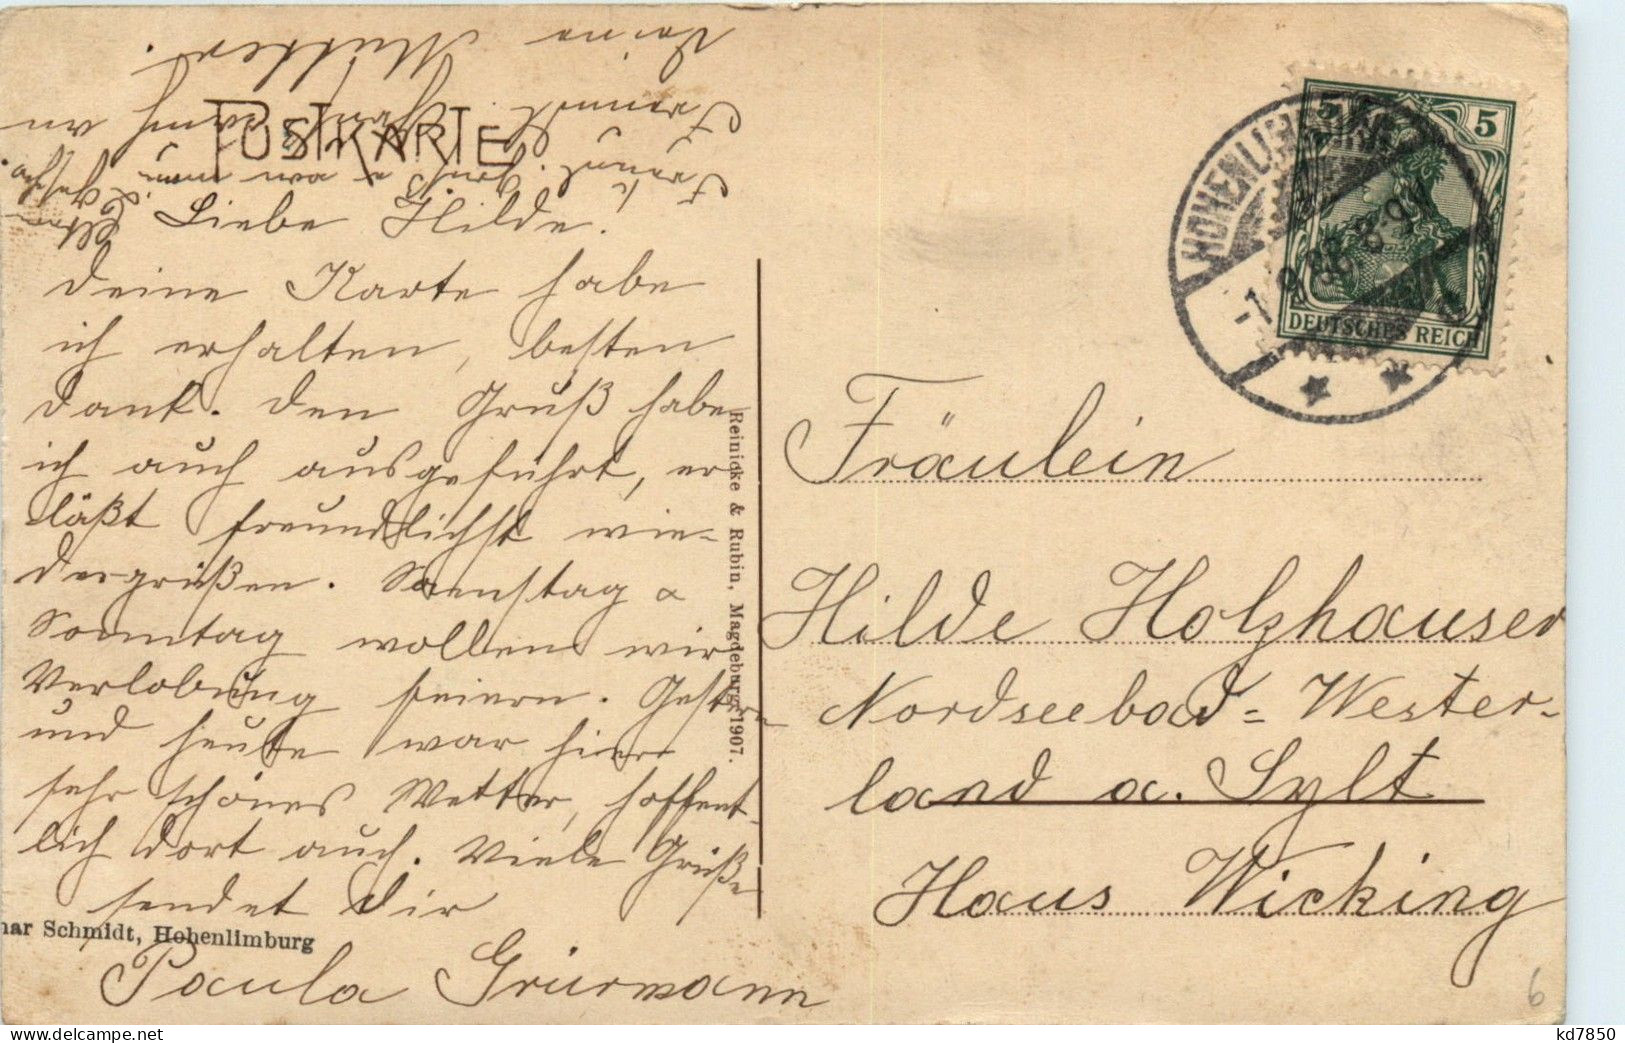 POSTKARTE
Liebe Hilde!
Deine Karte habe
ich erhalten, besten
Dank. Den Gruß habe
ich auch ausgeführt, er
läßt freundlichst wie-
dergrüßen. Samstag u
Sonntag wollen wir
Verlobung feiern. Gestern
und heute war hier
sehr schönes Wetter, hoffent-
lich dort auch. Viele Grüße
sendet Dir
Paula
Deine Mutter.
Reinicke & Rubin, Magdeburg 1907.
mar Schmidt, Hohenlimburg
5 5
DEUTSCHES REICH
HOHENLIMBURG
Fräulein
Hilde Holzhauser
Nordseebad-Wester-
land a. Sylt
Haus Wicking
6
kd7850